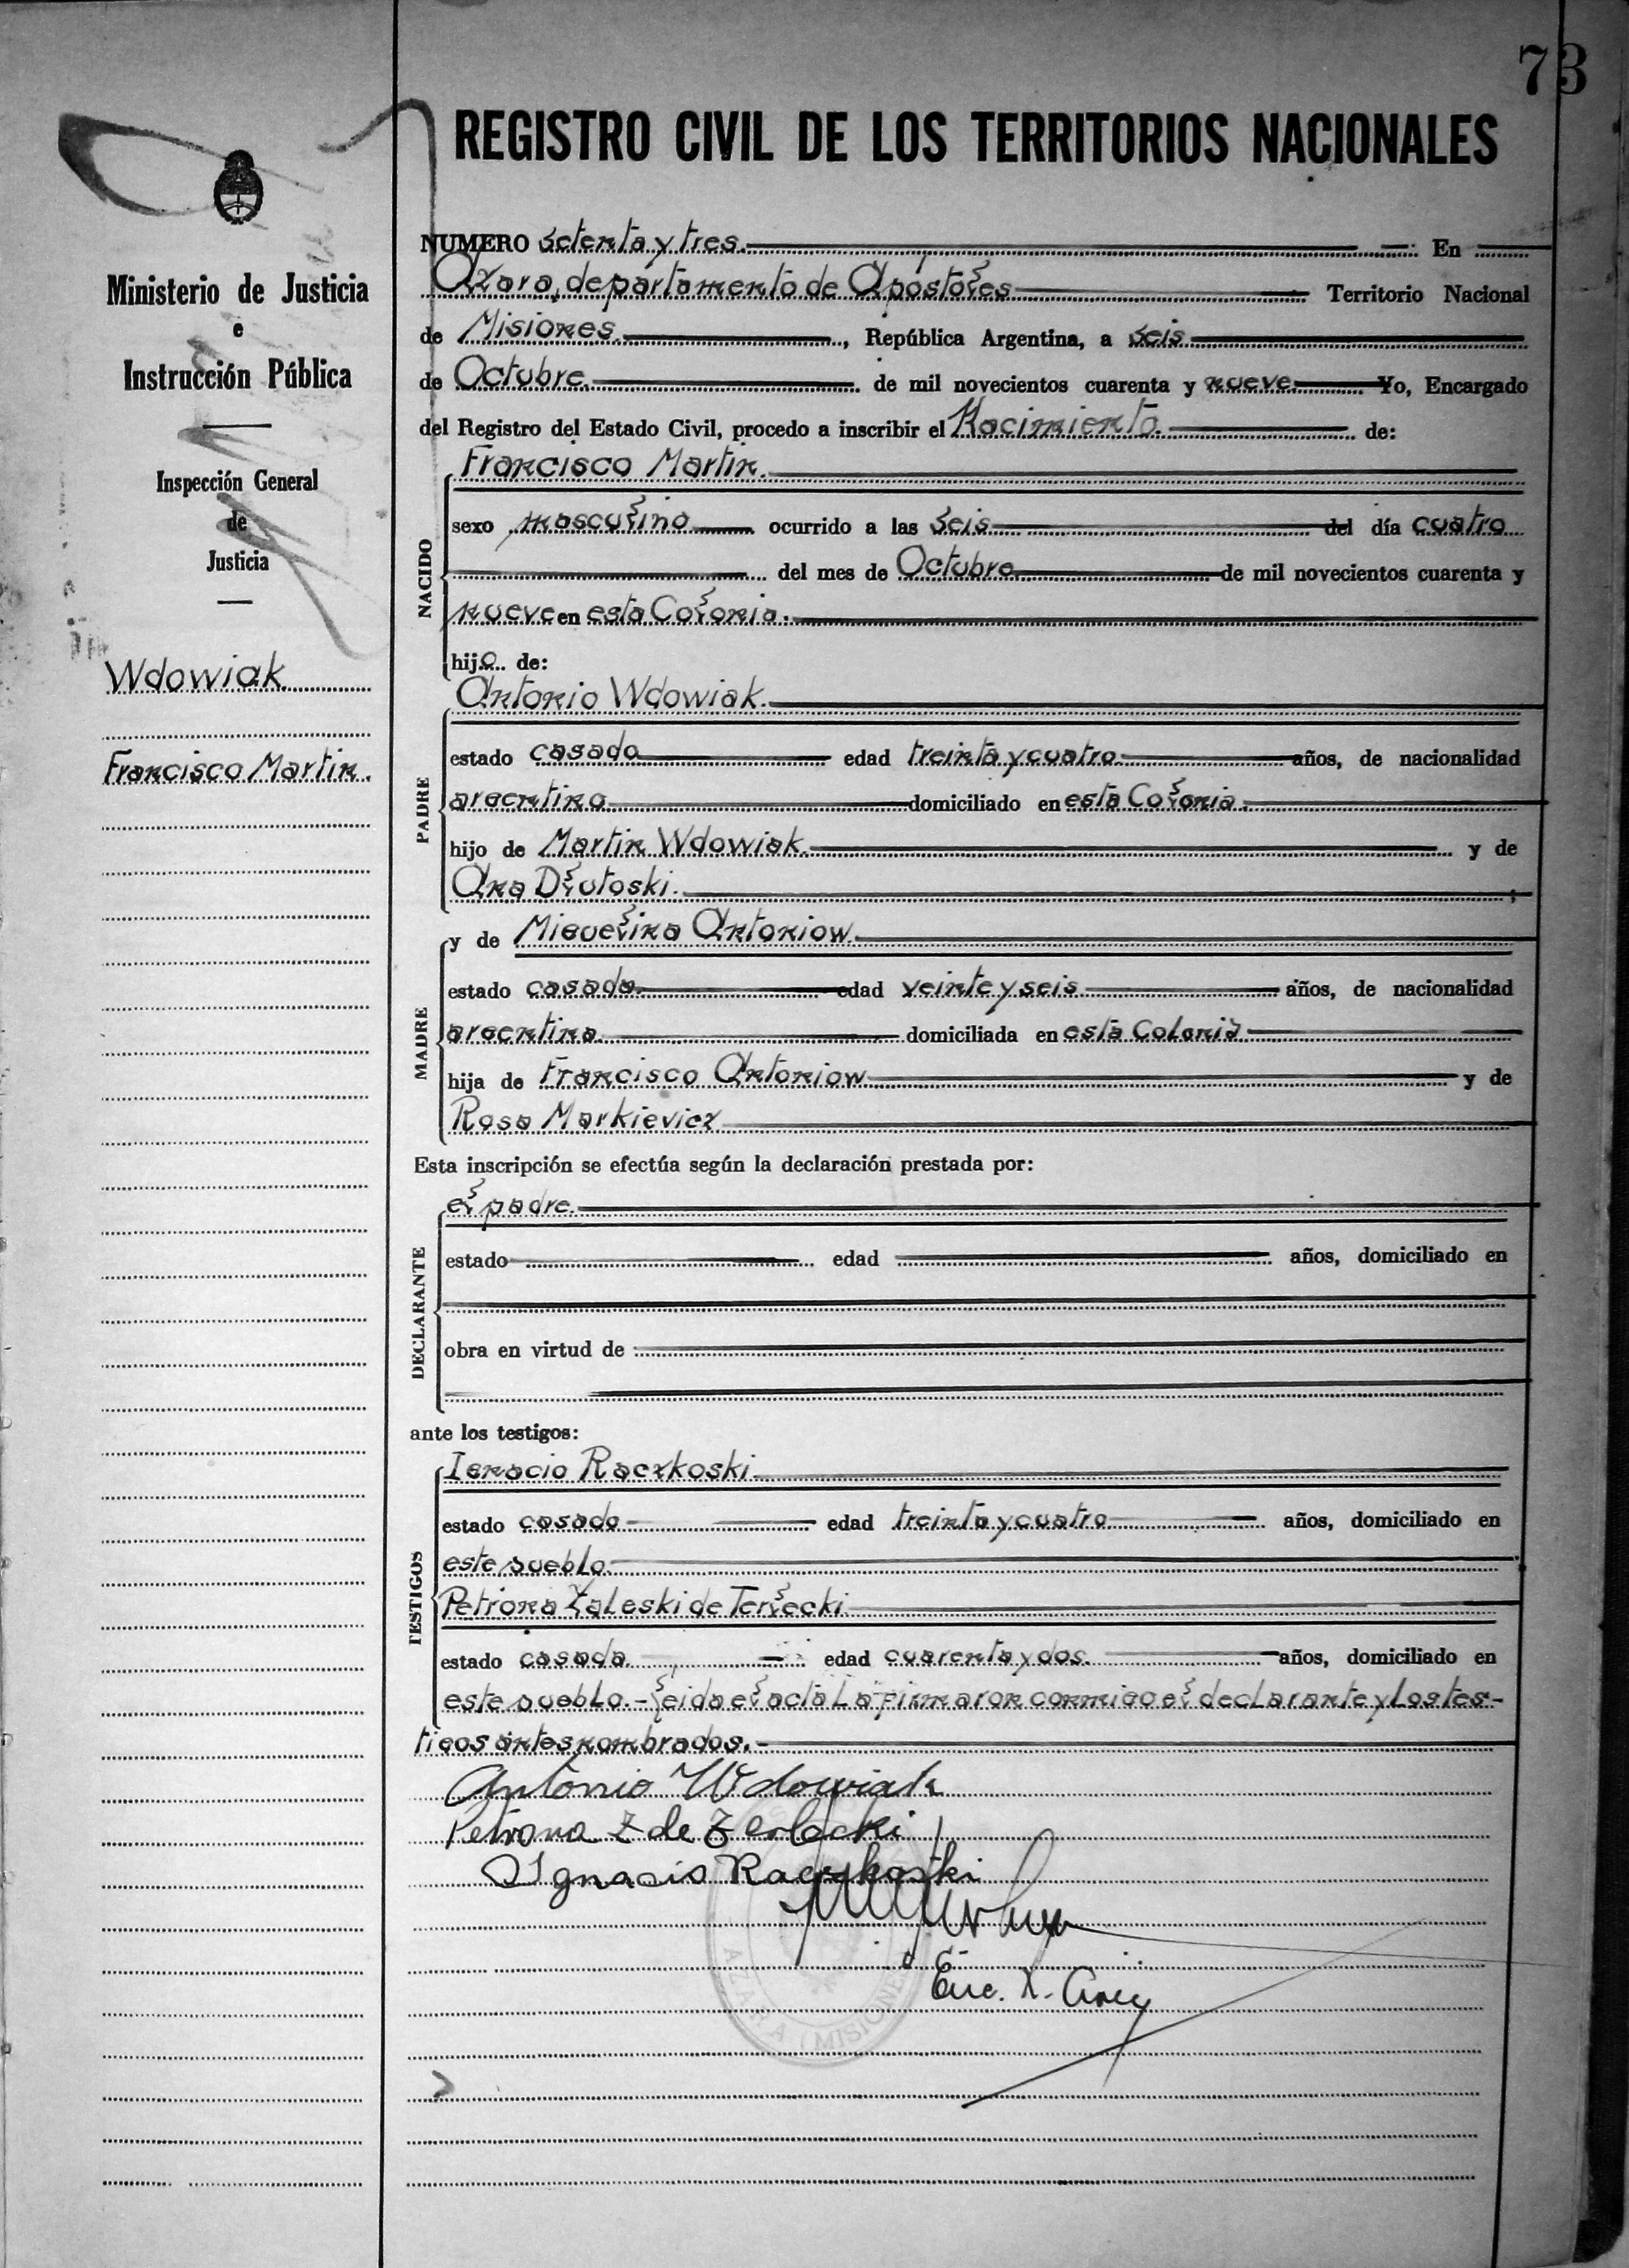 73
REGISTRO CIVIL DE LOS TERRITORIOS NACIONALES
Ministerio de Justicia
e
Instrucción Pública
Inspección General
de
Justicia
Wdowiak
Francisco Martin.
NUMERO setenta y tres. En
Azara, departamento de Apóstoles Territorio Nacional
de Misiones., República Argentina, a seis
de Octubre. de mil novecientos cuarenta y nueve. Yo, Encargado
del Registro del Estado Civil, procedo a inscribir el Nacimiento. de:
Francisco Martin.
NACIDO
sexo masculino ocurrido a las seis del día cuatro
del mes de Octubre de mil novecientos cuarenta y
nueve en esta Colonia.
hijo de:
Antonio Wdowiak.
PADRE
estado casado edad treinta y cuatro años, de nacionalidad
argentina domiciliado en esta Colonia.
hijo de Martin Wdowiak. y de
Ana Dlutoski. ;
MADRE
y de Miguelina Antoniow.
estado casada. edad veinte y seis años, de nacionalidad
argentina domiciliada en esta Colonia
hija de Francisco Antoniow y de
Rosa Markievicz
Esta inscripción se efectúa según la declaración prestada por:
DECLARANTE
el padre.
estado edad años, domiciliado en
obra en virtud de
ante los testigos:
TESTIGOS
Ignacio Raczkoski
estado casado edad treinta y cuatro años, domiciliado en
este pueblo.
Petrona Zaleski de Terlecki
estado casada. edad cuarenta y dos. años, domiciliado en
este pueblo.- Leida el acta La firmaron conmigo el declarante y Los tes-
tigos antes nombrados.-
Antonio Wdowiak
Petrona Z de Terlecki
Ignacio Raczkoski
Enc.
AZARA (MISIONES